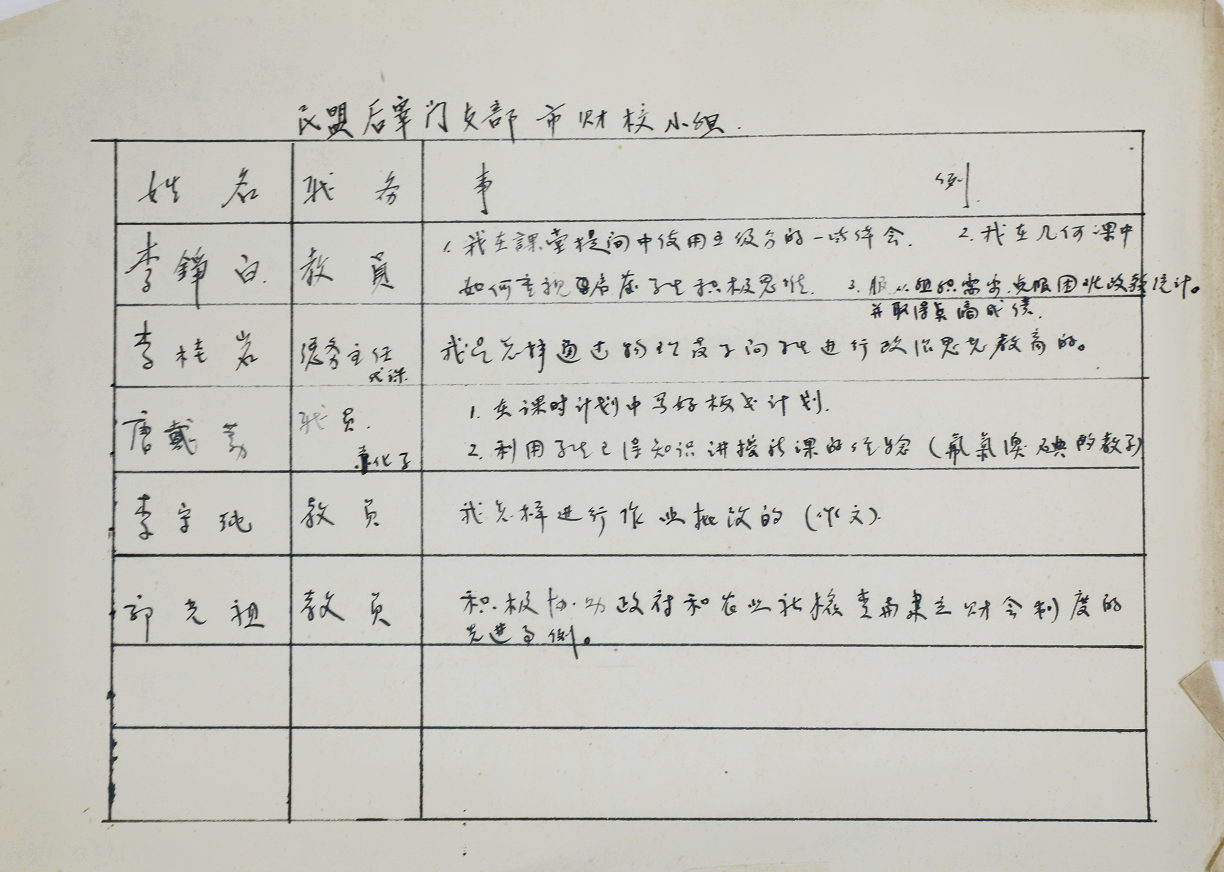 民盟后宰门支部市财校小组.
姓名 职务 事例
李錚白 教員 1. 我在課堂提问中使用五级分的一些体会. 2. 我在几何课中
如何重视启发学生积极思维. 3. 服从组织需要,克服困难改教统计。
并取得良好成绩.
李桂岩 总务主任 我是怎样通过物理教学向学生进行政治思想教育的。
代课.
唐戴 职员. 1. 在课时计划中写好板书计划.
教化学 2. 利用学生已得知识讲授新课的经验(氟氯溴碘的教学)
李宇纯 教员 我怎样进行作业批改的(作文).
郭光祖 教员 积极协助政府和农业社检查而建立财会制度的
先进事例。